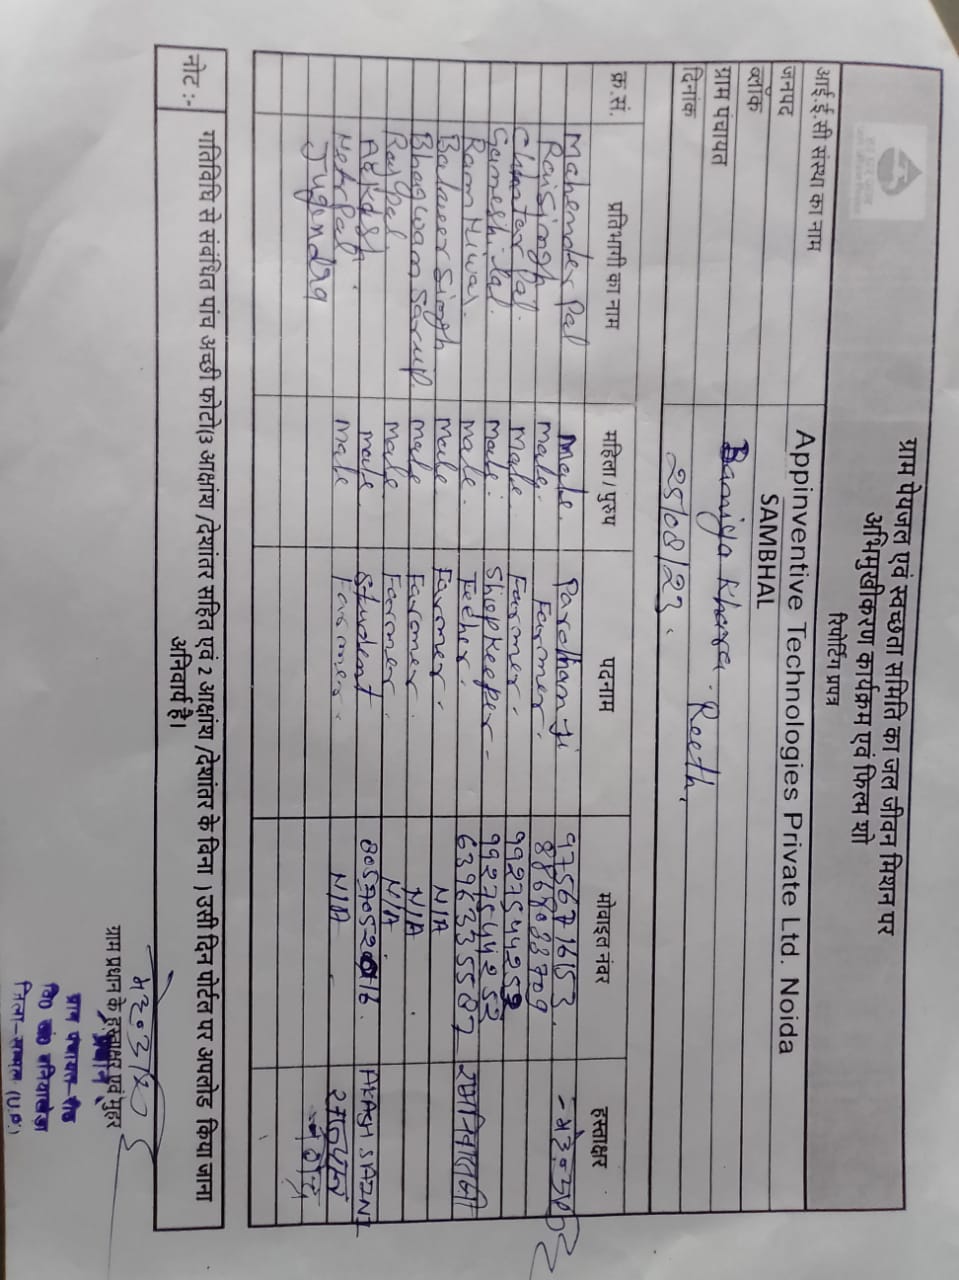 ग्राम पेयजल एवं स्वच्छता समिति का जल जीवन मिशन पर
अभिमुखीकरण कार्यक्रम एवं फिल्म शो
रिपोर्टिंग प्रपत्र
आई.ई.सी संस्था का नाम Appinventive Technologies Private Ltd. Noida
जनपद SAMBHAL
ब्लॉक Baniya Khera.
ग्राम पंचायत Reeth,
दिनांक 25/08/23.
क्र.सं. प्रतिभागी का नाम महिला / पुरुष पदनाम मोबाइल नंबर हस्ताक्षर
Mahender Pal Male. Pardhan Ji 9756716153.
Raisingh male. Farmer. 8868088709
Chuntar Pal. Male. Farmer. 9927544253
Ganeshi Lal. male. Shopkeeper 9927544253
Ram Niwas. male. Techer. 6396335587
Balveer Singh Male. Farmer. N/A
Bhagwan Sarup. male Farmer. N/A
Rajpal. Male Farmer. N/A
AKKASH. male. Student 8057052016. AKASH SAINI
Netrpal. male Farmer. N/A
Jugendra
नोट :- गतिविधि से संबंधित पांच अच्छी फोटो(3 आक्षांश /देशांतर सहित एवं 2 आक्षांश /देशांतर के विना ) उसी दिन पोर्टल पर अपलोड किया जाना
अनिवार्य है।
ग्राम प्रधान के हस्ताक्षर एवं मुहर
प्रधान
ग्राम पंचायत-रीठ
वि० खं० बनियाखेड़ा
जिला-सम्भल (U.P.)